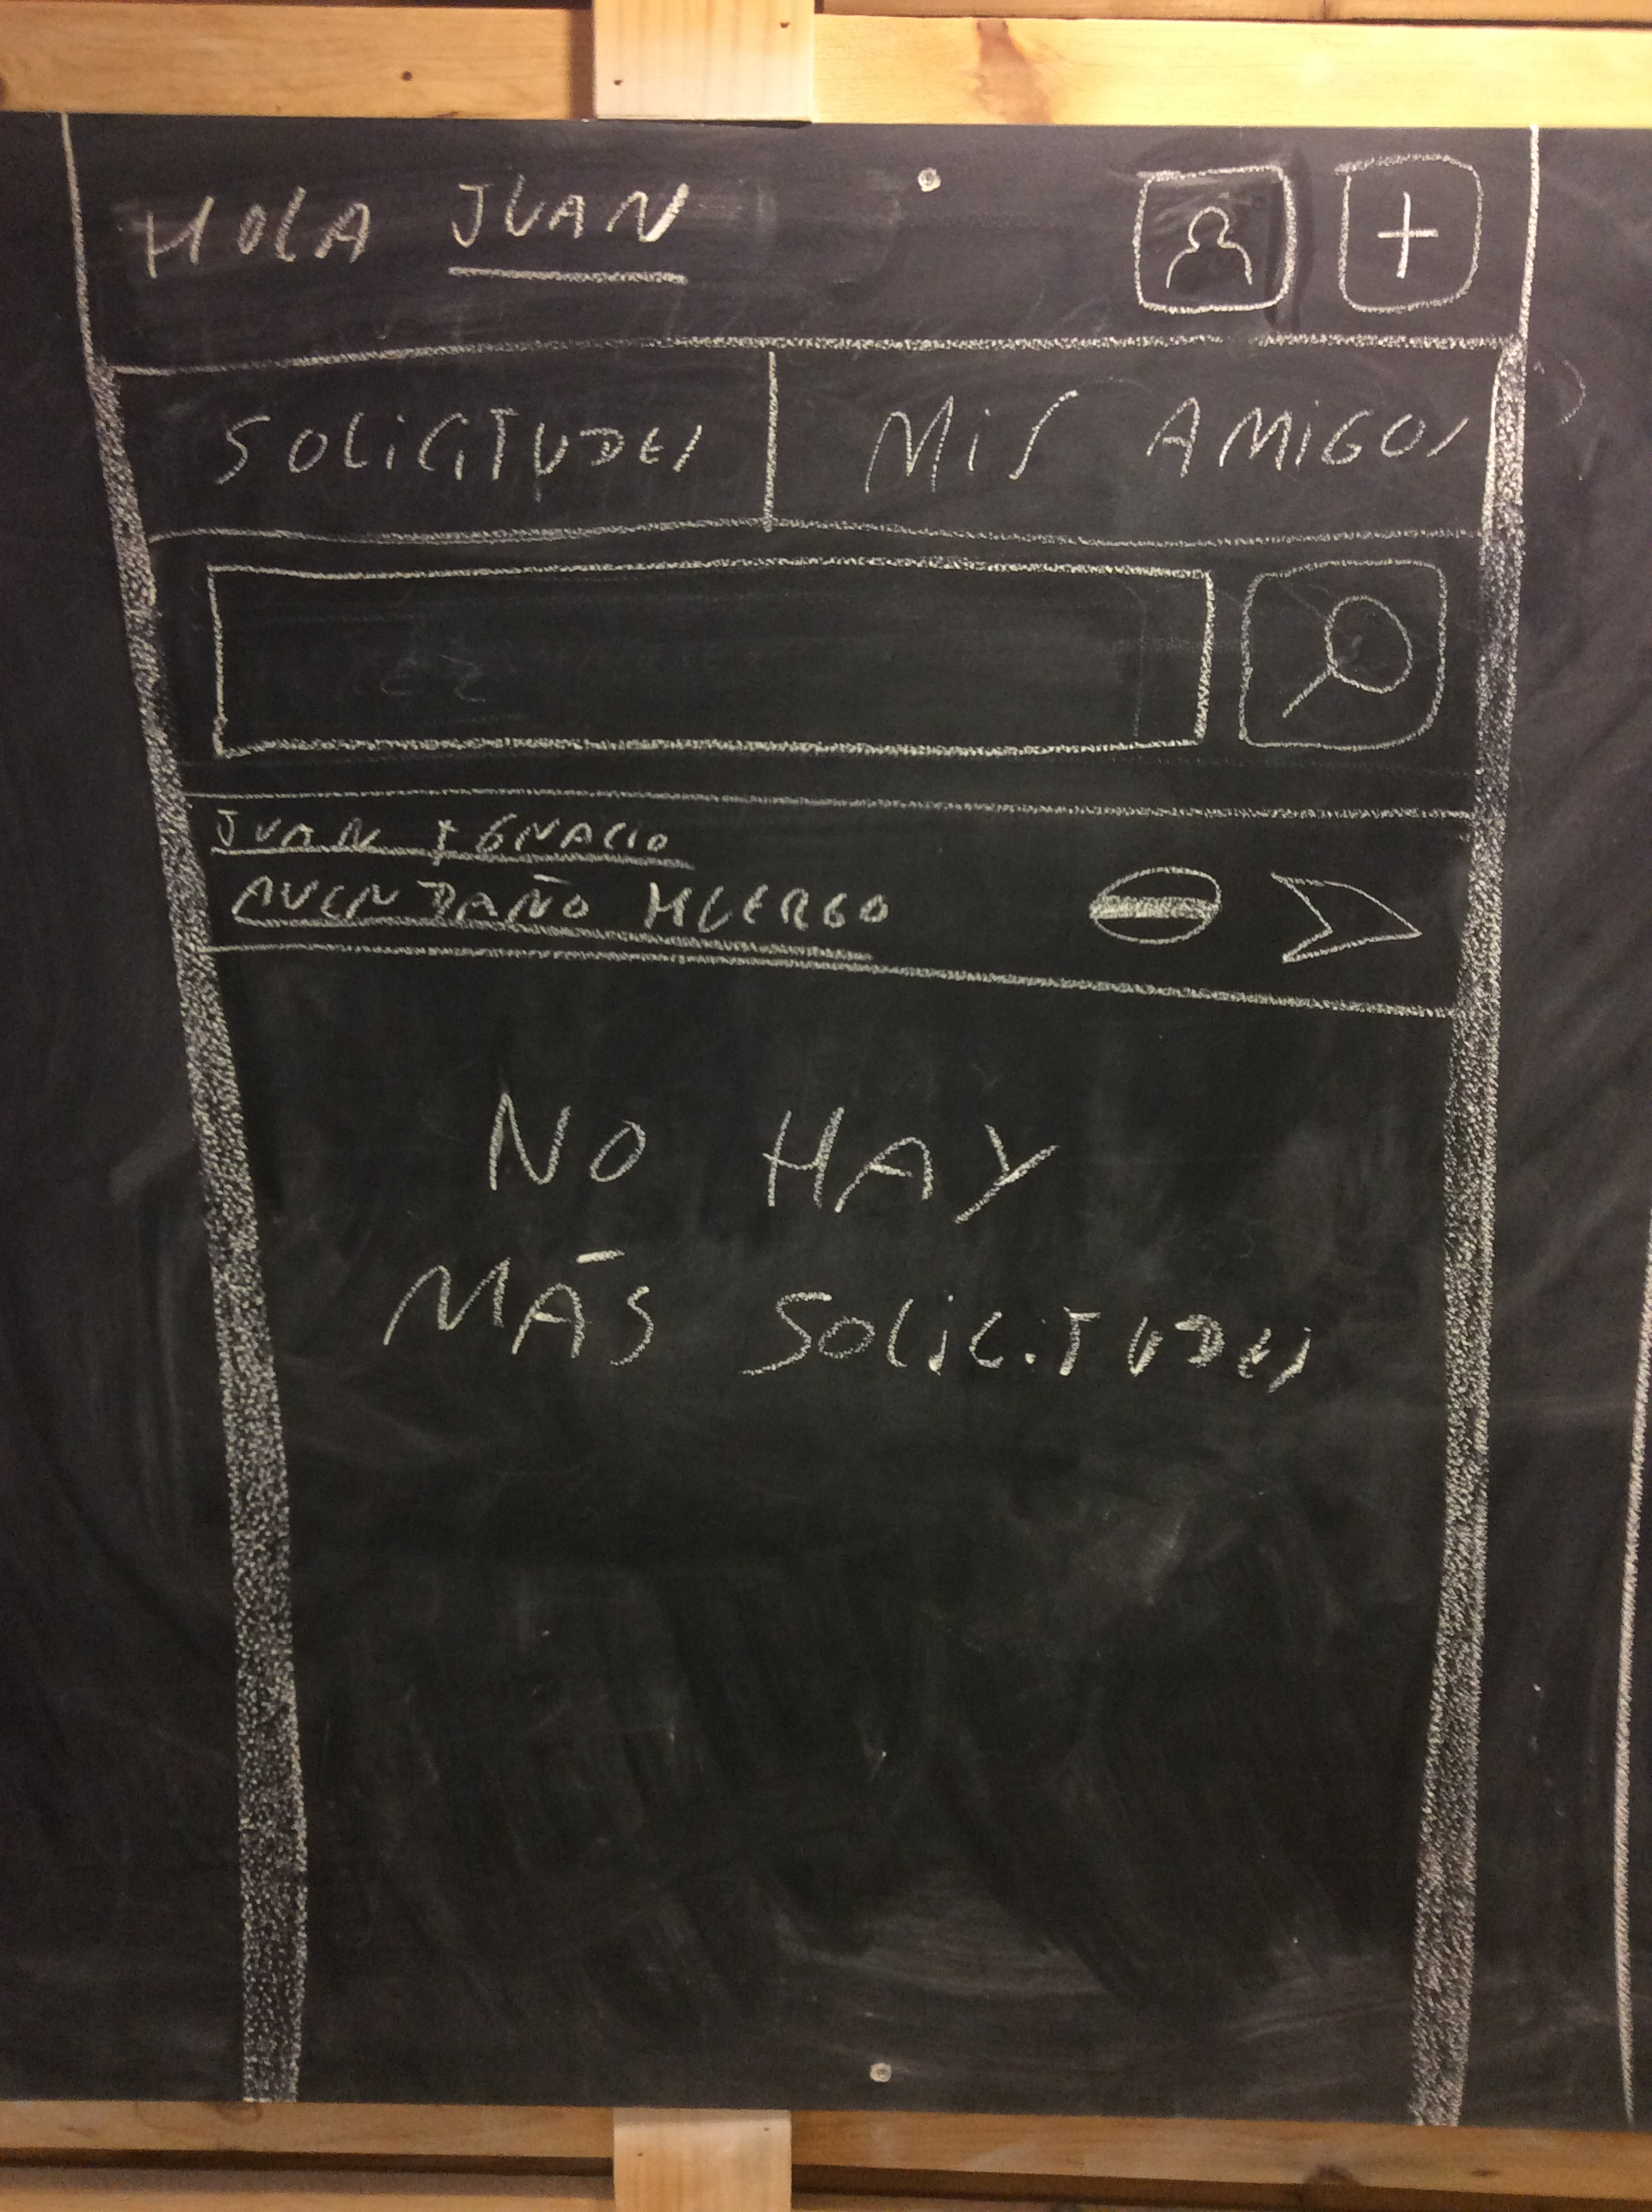 HOLA JUAN
SOLiCiTUDES
MiS AMiGOS
JUAN IGNACIO
AVENDAÑO HUERGO
NO HAY
MÁS SOLiCiTUDES